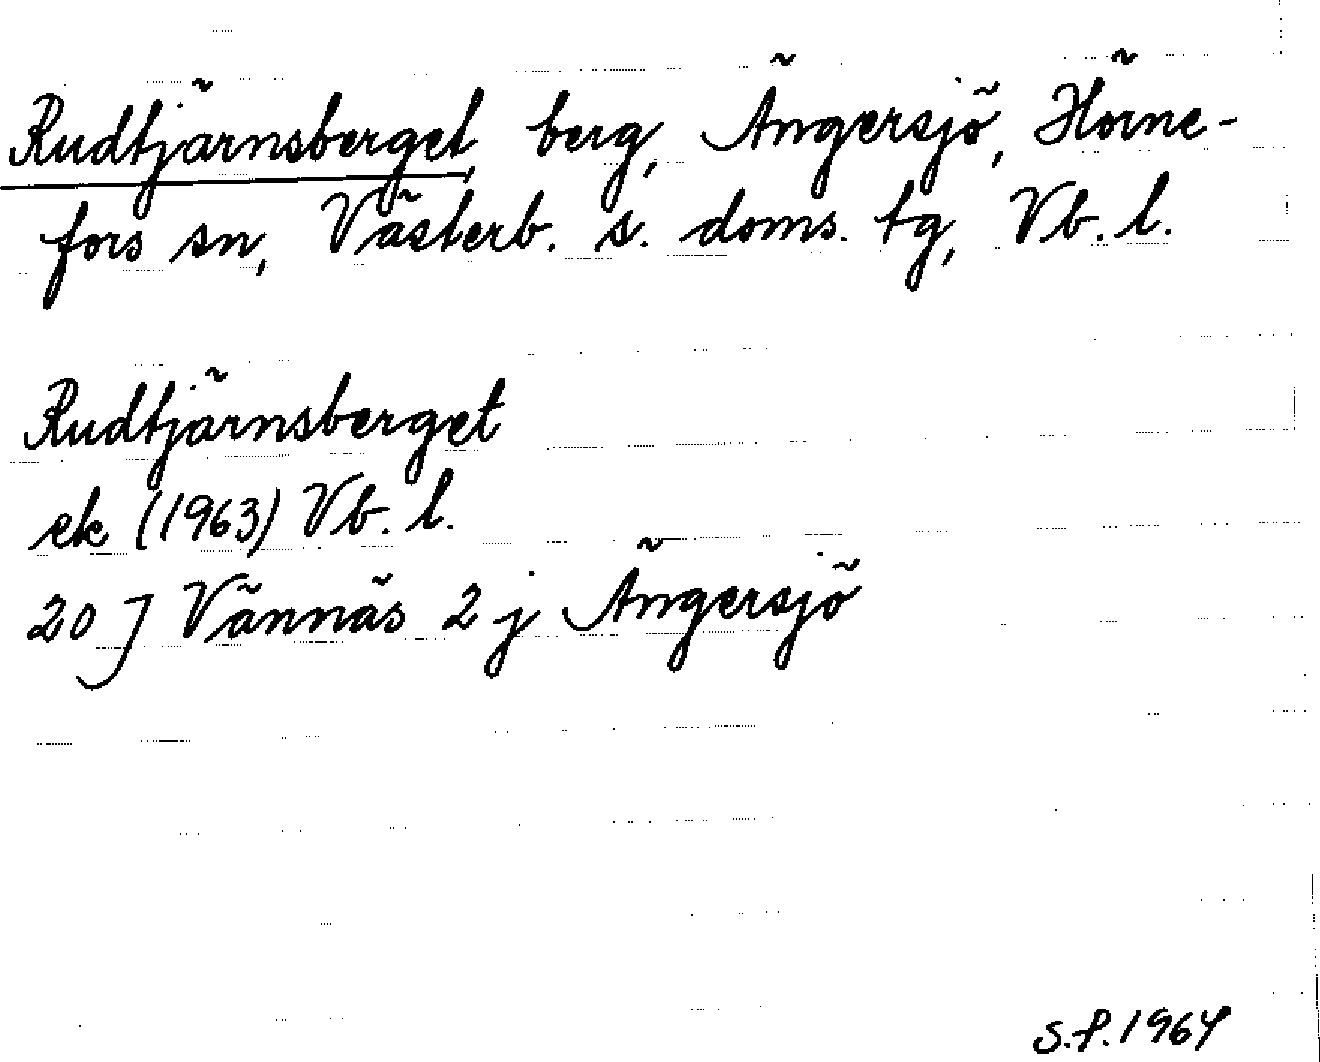 Rudtjärnsberget, berg, Ängersjö, Hörne-
fors sn, Västerb. s. doms. tg, Vb. l.
Rudtjärnsberget
ek (1963) Vb. l.
20 J Vännäs 2 j Ängersjö
S.P. 1964